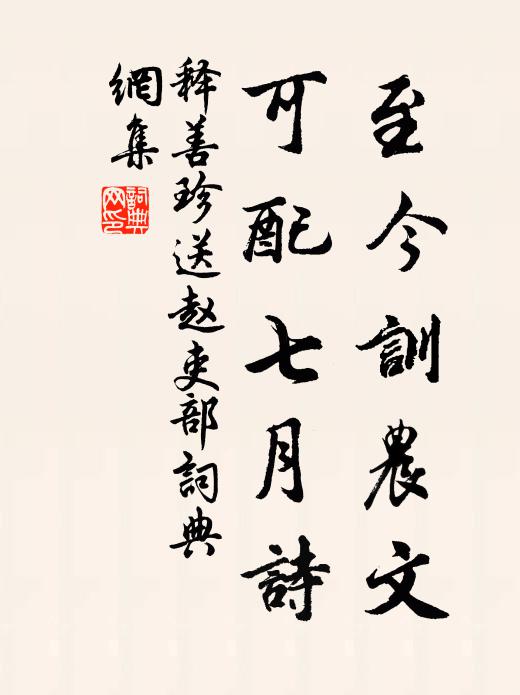 至今訓農文
可配七月詩
释善珍送赵吏部詞典
網集
詞典网印